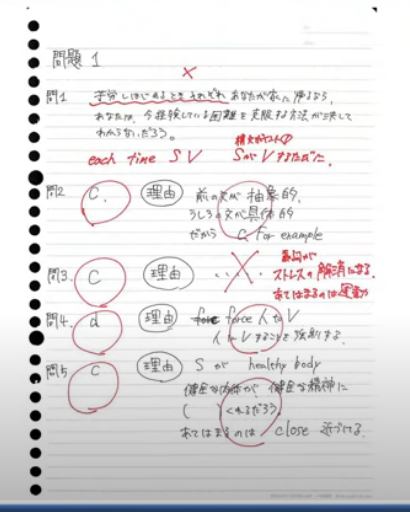 問題 1
問1 それぞれ あなたが家に帰るなら,
あなたは, 今経験している困難を克服する方法が決して
わからないだろう。
each time S V SがVするたびに.
問2 C. 理由 前の文が 抽象的,
うしろの文が具体的
だから C. for example
問3. C 理由 ...
ストレスの解消になる.
あてはまるのは運動
問4. d 理由 force 人 to V
人にVすることを強制する.
問5 C 理由 S が healthy body
健全な肉体が, 健全な精神に
( ) くれるだろう.
あてはまるのは close 近づける.